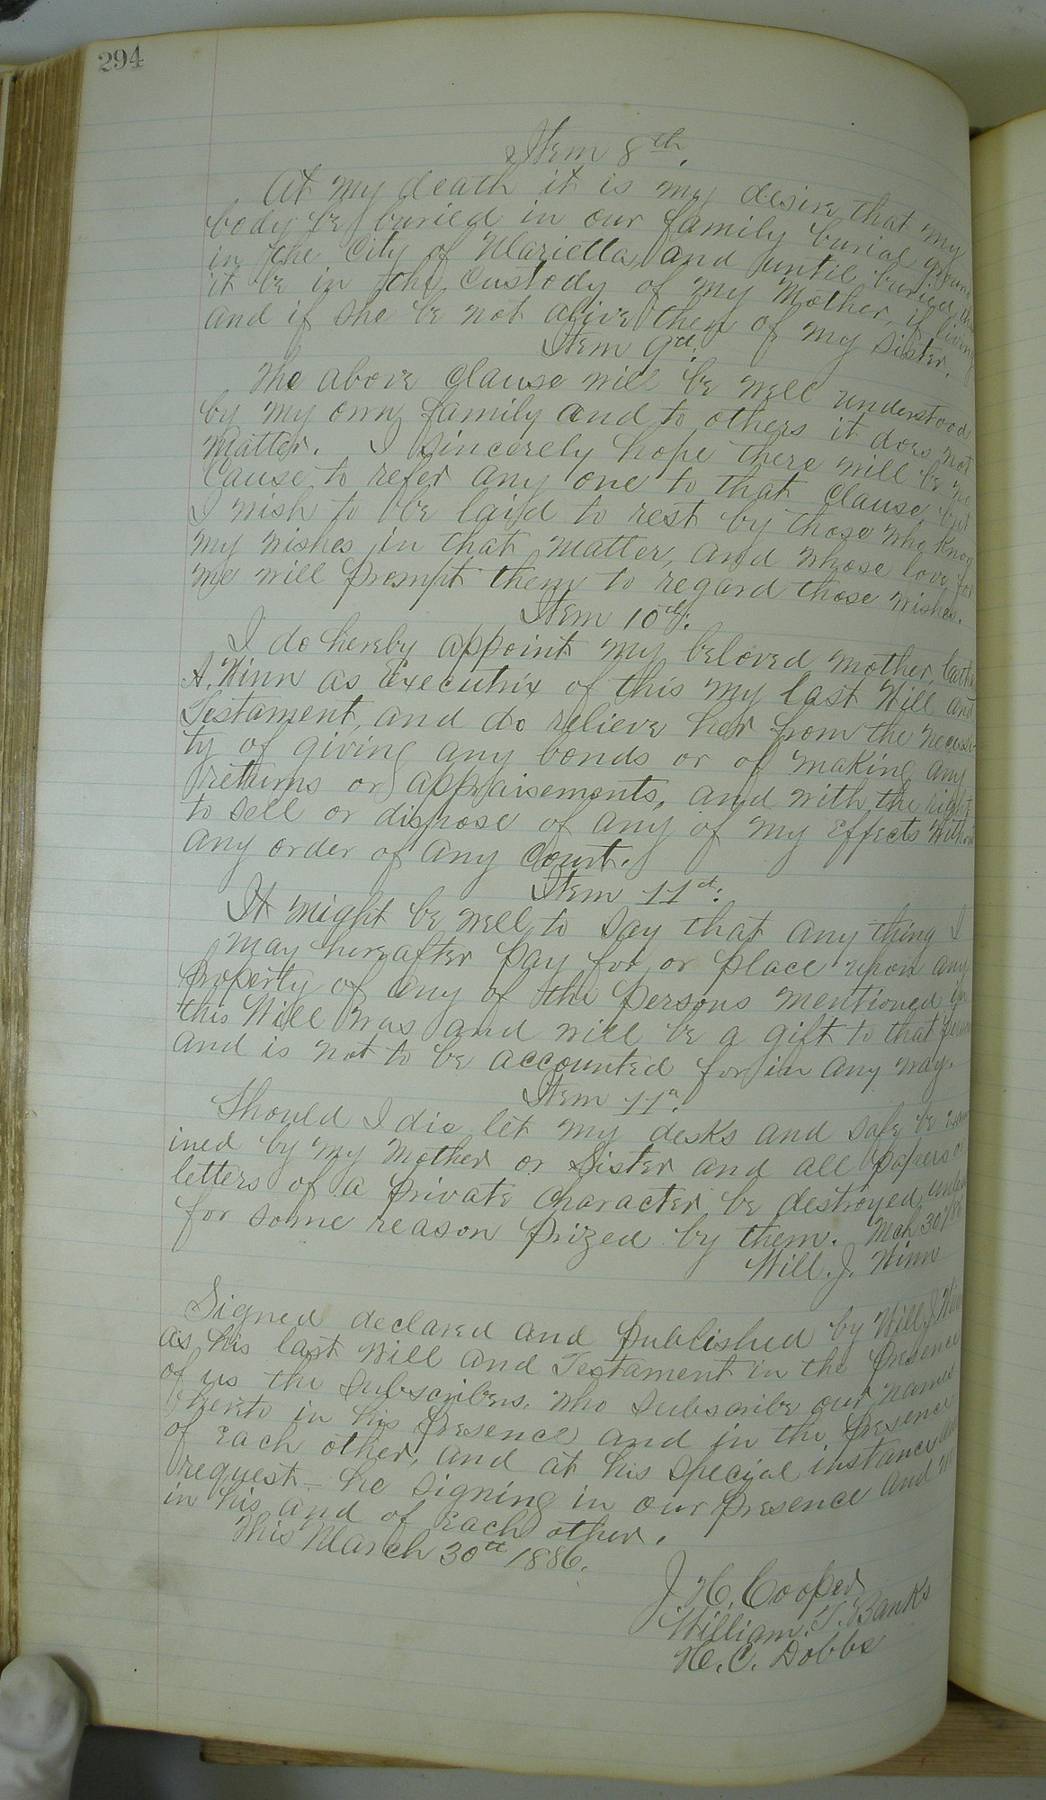 294
Item 8th.
At my death it is my desire that my
body be buried in our family burial ground
in the City of Marietta and until buried, that
it be in the custody of my Mother, if living
and if she be not alive then of my sister.
Item 9d.
The above clause will be well understood
by my own family and to others it does not
matter. I sincerely hope there will be no
cause to refer any one to that clause but
I wish to be laid to rest by those who know
my wishes in that matter, and whose love for
me will prompt them to regard those wishes.
Item 10th.
I do hereby appoint my beloved mother,
A. Winn as Executrix of this my last Will and
Testament, and do relieve her from the necessi-
ty of giving any bonds or of making any
returns or appraisements, and with the right
to sell or dispose of any of my Effects without
any order of any Court.
Item 11d.
It might be well to say that any thing I
may hereafter pay for or place upon any
property of any of the persons mentioned in
this Will was and will be a gift to that person
and is not to be accounted for in any way.
Item 11"
Should I die let my desks and safe be exam
ined by my Mother or Sister and all papers or
letters of a private character be destroyed, unless
for some reason prized by them. Mch 30/86
Will. J. Winn
Signed declared and published by Will J. Winn
as his last Will and Testament in the presence
of us the subscribers, who subscribe our names
hereto in his presence and in the presence
of each other, and at his special instance and
request - he signing in our presence and we
in his and of each other.
This March 30th 1886.
J. H. Cooper
William. T. Banks
H. C. Dobbs